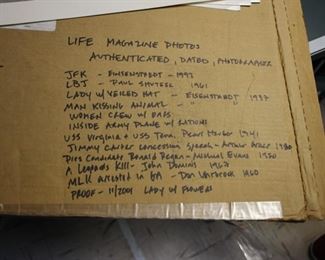 LIFE MAGAZINE PHOTOS
AUTHENTICATED, DATED, PHOTOGRAPHER
JFK - EINSENSTAEDT - 1993
LBJ - PAUL SHUTZER 1961
LADY W/ VEILED HAT - EISENSTAEDT 1937
MAN KISSING ANIMAL - " "
WOMEN CREW W/
INSIDE ARMY PLANE W/ RATIONS
USS Virginia + USS Tenn. Pearl Harbor 1941
Jimmy Carter Concession Speech - Arthur 1980
Pres Candidate Ronald Regan - Michael Evans 1980
A Leopards Kill - John Dominis 1967
MLK arrested in GA - Don 1960
PROOF - 11/2001 LADY W/ FLOWERS